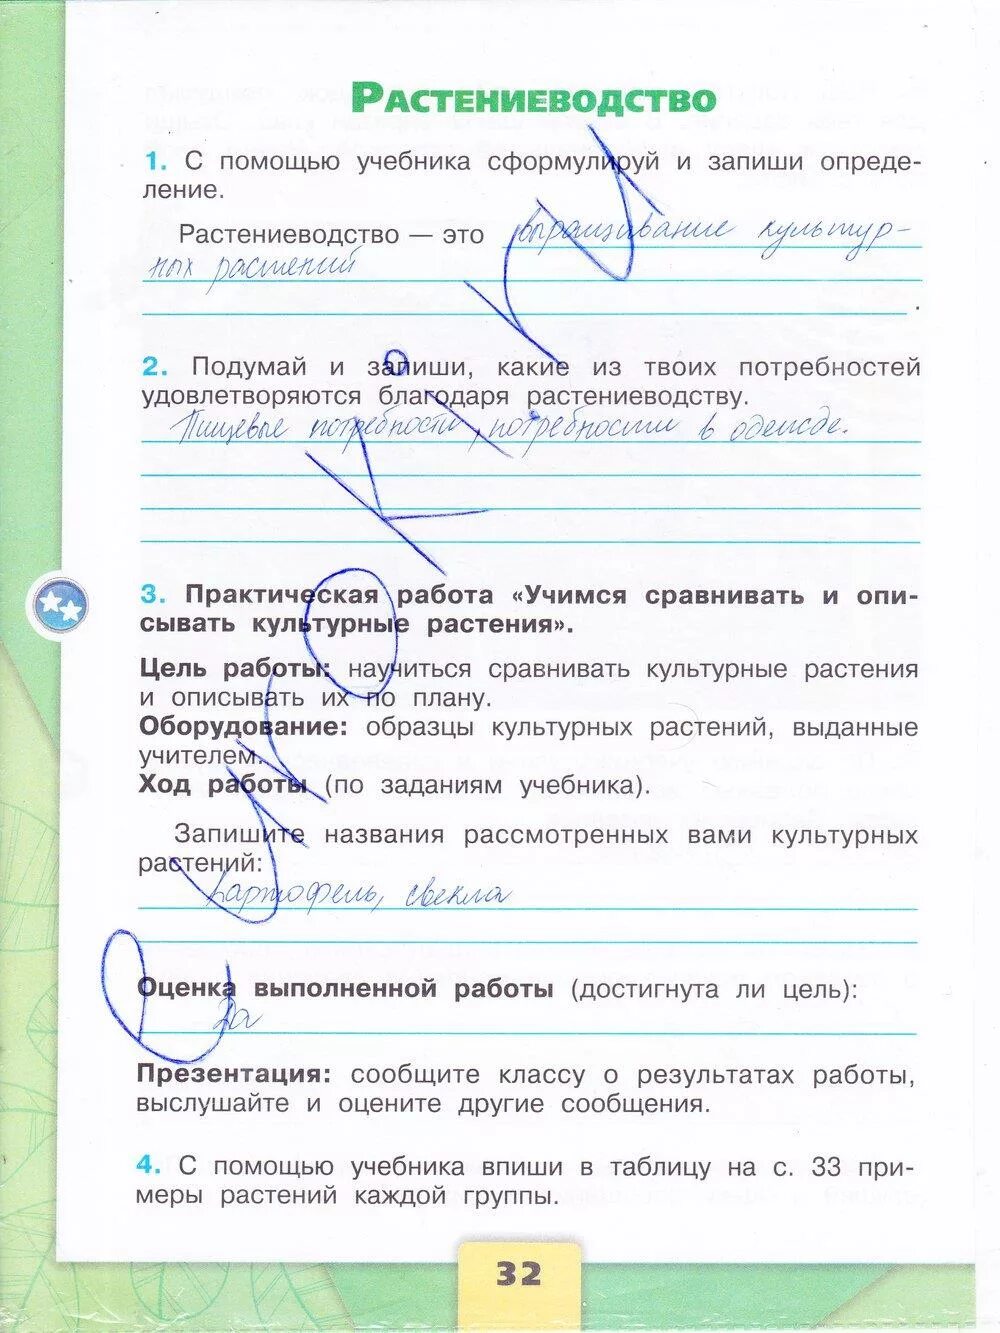 РАСТЕНИЕВОДСТВО
1. С помощью учебника сформулируй и запиши опреде-
ление.
Растениеводство — это выращивание культур-
ных растений
.
2. Подумай и запиши, какие из твоих потребностей
удовлетворяются благодаря растениеводству.
Пищевые потребности, потребности в одежде.
3. Практическая работа «Учимся сравнивать и опи-
сывать культурные растения».
Цель работы: научиться сравнивать культурные растения
и описывать их по плану.
Оборудование: образцы культурных растений, выданные
учителем.
Ход работы (по заданиям учебника).
Запишите названия рассмотренных вами культурных
растений:
картофель, свекла
Оценка выполненной работы (достигнута ли цель):
Да
Презентация: сообщите классу о результатах работы,
выслушайте и оцените другие сообщения.
4. С помощью учебника впиши в таблицу на с. 33 при-
меры растений каждой группы.
32